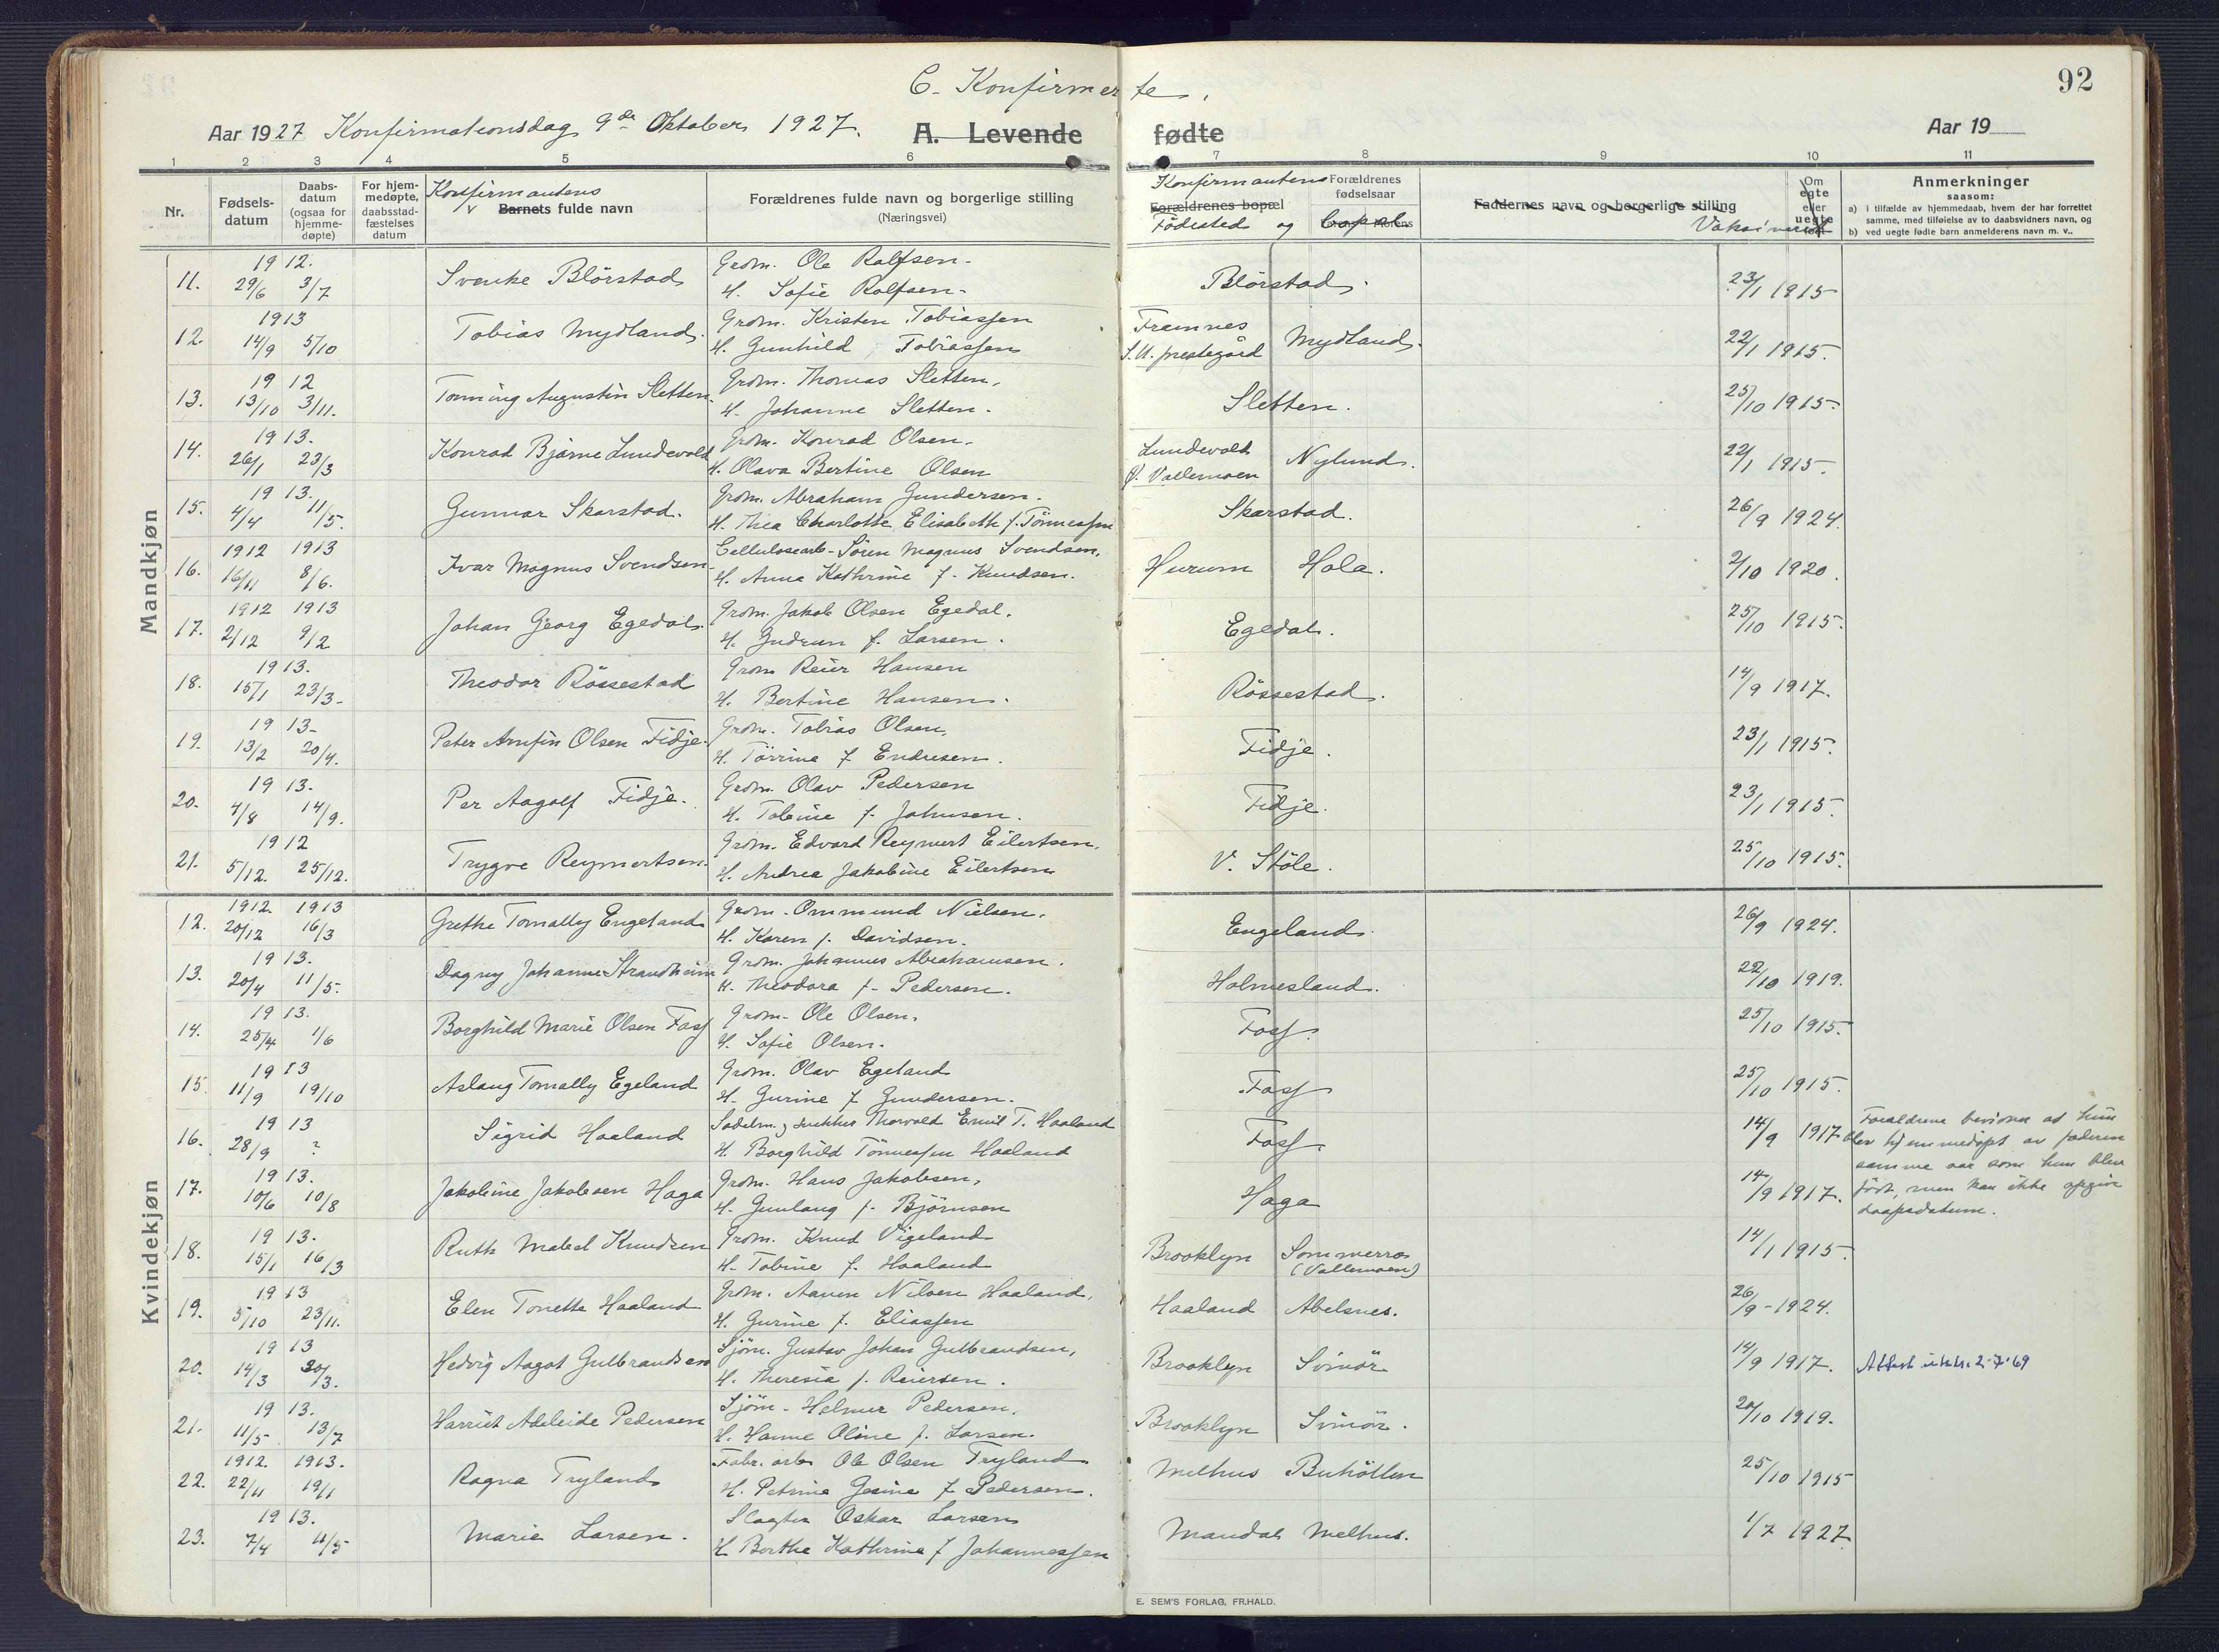 C. Konfirmerte.
92
Aar 1927 Konfirmationsdag 9de Oktober 1927. A. Levende fødte Aar 19
1 2 3 4 5 6 7 8 9 10 11
Nr.
Fødsels-
datum
Daabs-
datum
(ogsaa for
hjemme-
døpte)
For hjem-
medøpte,
daabsstad-
fæstelses
datum
Konfirmantens
v Barnets fulde navn
Forældrenes fulde navn og borgerlige stilling
(Næringsvei)
Konfirmantens
Forældrenes bopæl
Födested og bopæl
Forældrenes
fødselsaar
Faddernes navn og borgerlige stilling
Om
egte
eller
uegte
Anmerkninger
saasom:
a) i tilfælde av hjemmedaab, hvem der har forrettet
samme, med tilføielse av to daabsvidners navn, og
b) ved uegte fødte barn anmelderens navn m. v..
Mandkjøn
1912.
11. 29/6 3/7 Svenke Blörstad Grdm. Ole Rolfsen. H. Sofie Rolfsen. Blörstad. 23/1 1915
1913
12. 14/9 5/10 Tobias Mydland. Grdm. Kristen Tobiassen H. Gunhild Tobiassen Framnes S.U. prestegård Mydland. 22/1 1915.
1912
13. 13/10 3/11. Tonning Augustin Sletten. Grdm. Thomas Sletten. H. Johanne Sletten. Sletten. 25/10 1915.
1913.
14. 26/1 23/3 Konrad Bjarne Lundevold Grdm. Konrad Olsen. H. Olava Bertine Olsen Lundevold Vallemoen Nylund. 22/1 1915.
1913.
15. 4/4 11/5. Gunnar Skarstad. Grdm. Abraham Gundersen. H. Thea Charlotte Elisabeth f. Tönnessen Skarstad. 26/9 1924.
1912 1913
16. 16/11 8/6. Ivar Magnus Svendsen. Cellulosearb. Sören Magnus Svendsen. H. Anna Kathrine f. Knudsen. Hurum Hola. 2/10 1920.
1912 1913
17. 2/12 9/2 Johan Georg Egedal. Grdm. Jakob Olsen Egedal. H. Gudrun f. Larsen. Egedal. 25/10 1915.
1913.
18. 15/1 23/3 Theodor Rössestad Grdm Reier Hansen H. Bertine Hansen. Rössestad. 14/9 1917.
1913
19. 13/2 20/4. Peter Arnfin Olsen Fidje. Grdm. Tobias Olsen, H. Törrine f Endresen. Fidje. 23/1 1915.
1913.
20. 4/8 14/9. Per Aagolf Fidje. Grdm. Olav Pedersen H. Tobine f. Johnsen. Fidje. 23/1 1915.
1912
21. 5/12. 25/12. Trygve Reymertsen. Grdm. Edvard Reymert Eilertsen. H. Andrea Jakobine Eilertsen V. Stöle. 25/10 1915.
Kvindekjøn
1912. 1913
12. 20/12 16/3 Grethe Tomally Engeland Grdm. Ommund Nielsen. H. Karen f. Davidsen. Engeland. 26/9 1924.
1913.
13. 20/4 11/5. Dagny Johanne Strandheim Grdm. Johannes Abrahamsen. H. Theodora f. Pedersen. Holmesland. 22/10 1919.
1913.
14. 25/4 1/6 Borghild Marie Olsen Foss Grdm. Ole Olsen. H. Sofie Olsen. Foss. 25/10 1915.
1913
15. 11/9 19/10 Aslaug Tomally Egeland Grdm. Olav Egeland H. Gurine f Gundersen. Foss 25/10 1915.
1913
16. 28/9 ? Sigrid Haaland Sadelm. Thorvald Emil T. Haaland H. Borghild Tönnessen Haaland Foss. 14/9 1917
Forældrene bevidner at hun
blev hjemmedøpt av faderen
samme aar som hun blev
född, men kan ikke opgive
daapsdatum.
1913.
17. 10/6 10/8 Jakobine Jakobsen Haga Grdm. Hans Jakobsen, H. Gunlaug f. Björnsen Haga 14/9 1917.
1913.
18. 15/1 16/3 Ruth Mabel Knudsen Grdm. Knud Vigeland H. Tobine f. Haaland Brooklyn Sommerro (Vallemoen) 14/1 1915.
1913
19. 5/10 23/11. Elen Tonette Haaland Grdm. Aanen Nilsen Haaland, H. Gurine f. Eliassen Haaland Abelsnes. 26/9 - 1924.
1913
20. 14/3 30/3. Hedvig Aagot Gulbrandsen Sjöm. Gustav Johan Gulbrandsen, H. Theresia f. Reiersen. Brooklyn Svinör 14/9 1917. Attest utst. 2-7-69
1913.
21. 11/5 13/7 Harriet Adeleide Pedersen Sjöm. Helmer Pedersen. H. Hanne Oline f. Larsen. Brooklyn Svinör. 20/10 1919.
1912. 1913.
22. 22/11 19/1 Ragna Tryland Fabr. arb. Ole Olsen Tryland H. Petrine Gesine f Pedersen. Melhus Buhöllen 25/10 1915
1913.
23. 7/4 11/5 Marie Larsen. Slagter Oskar Larsen H. Berthe Kathrine f Johannessen Mandal Melhus. 1/7 1927
E. SEM'S FORLAG, FR.HALD.